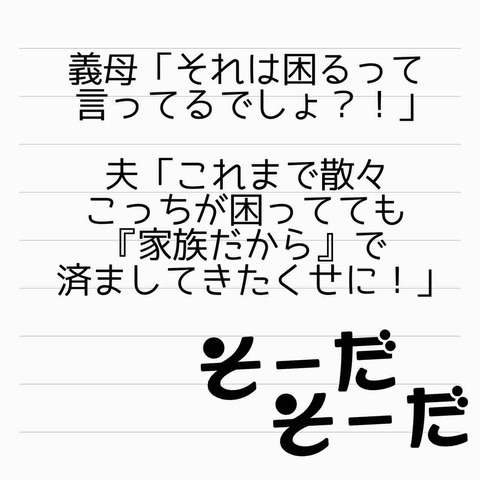 義母「それは困るって
言ってるでしょ？！」
夫「これまで散々
こっちが困ってても
『家族だから』で
済ましてきたくせに！」
そーだ
そーだ